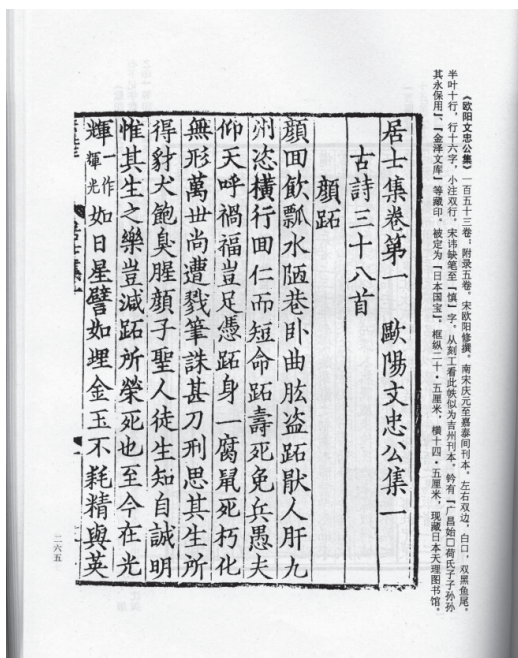 《欧阳文忠公集》一百五十三卷；附录五卷。宋欧阳修撰。南宋庆元至嘉泰间刊本。左右双边，白口，双黑鱼尾，
半叶十行，行十六字，小注双行，宋讳缺笔至『慎』字。从刻工看此帙似为吉州刊本。钤有『广昌始□荷氏子子孙孙
其永保用』、『金泽文库』等藏印。被定为『日本国宝』。框纵二十·五厘米，横十四·五厘米，现藏日本天理图书馆。
居士集卷第一 歐陽文忠公集一
古詩三十八首
顏跖
顏回飲瓢水陋巷卧曲肱盗跖猒人肝九
州恣橫行回仁而短命跖壽死免兵愚夫
仰天呼禍福豈足憑跖身一腐鼠死朽化
無形萬世尚遭戮筆誅甚刀刑思其生所
得豺犬飽臭腥顏子聖人徒生知自誠明
惟其生之樂豈減跖所榮死也至今在光
輝一作輝光如日星譬如埋金玉不耗精與英
二六五